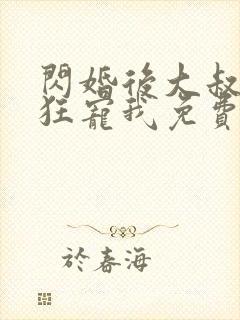 閃婚後大叔
狂寵我免費
於春海